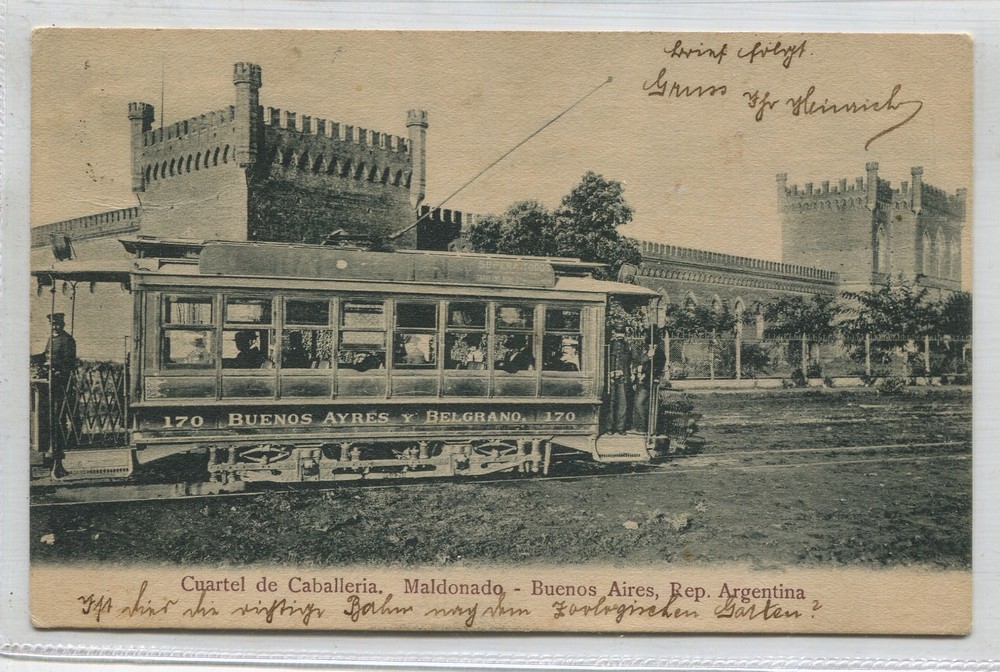 Brief folgt.
Gruss Ihr Heinrich
170 BUENOS AYRES Y BELGRANO. 170
Cuartel de Caballeria. Maldonado - Buenos Aires, Rep. Argentina
Ist dies die richtige Bahn nach dem Zoologischen Garten?